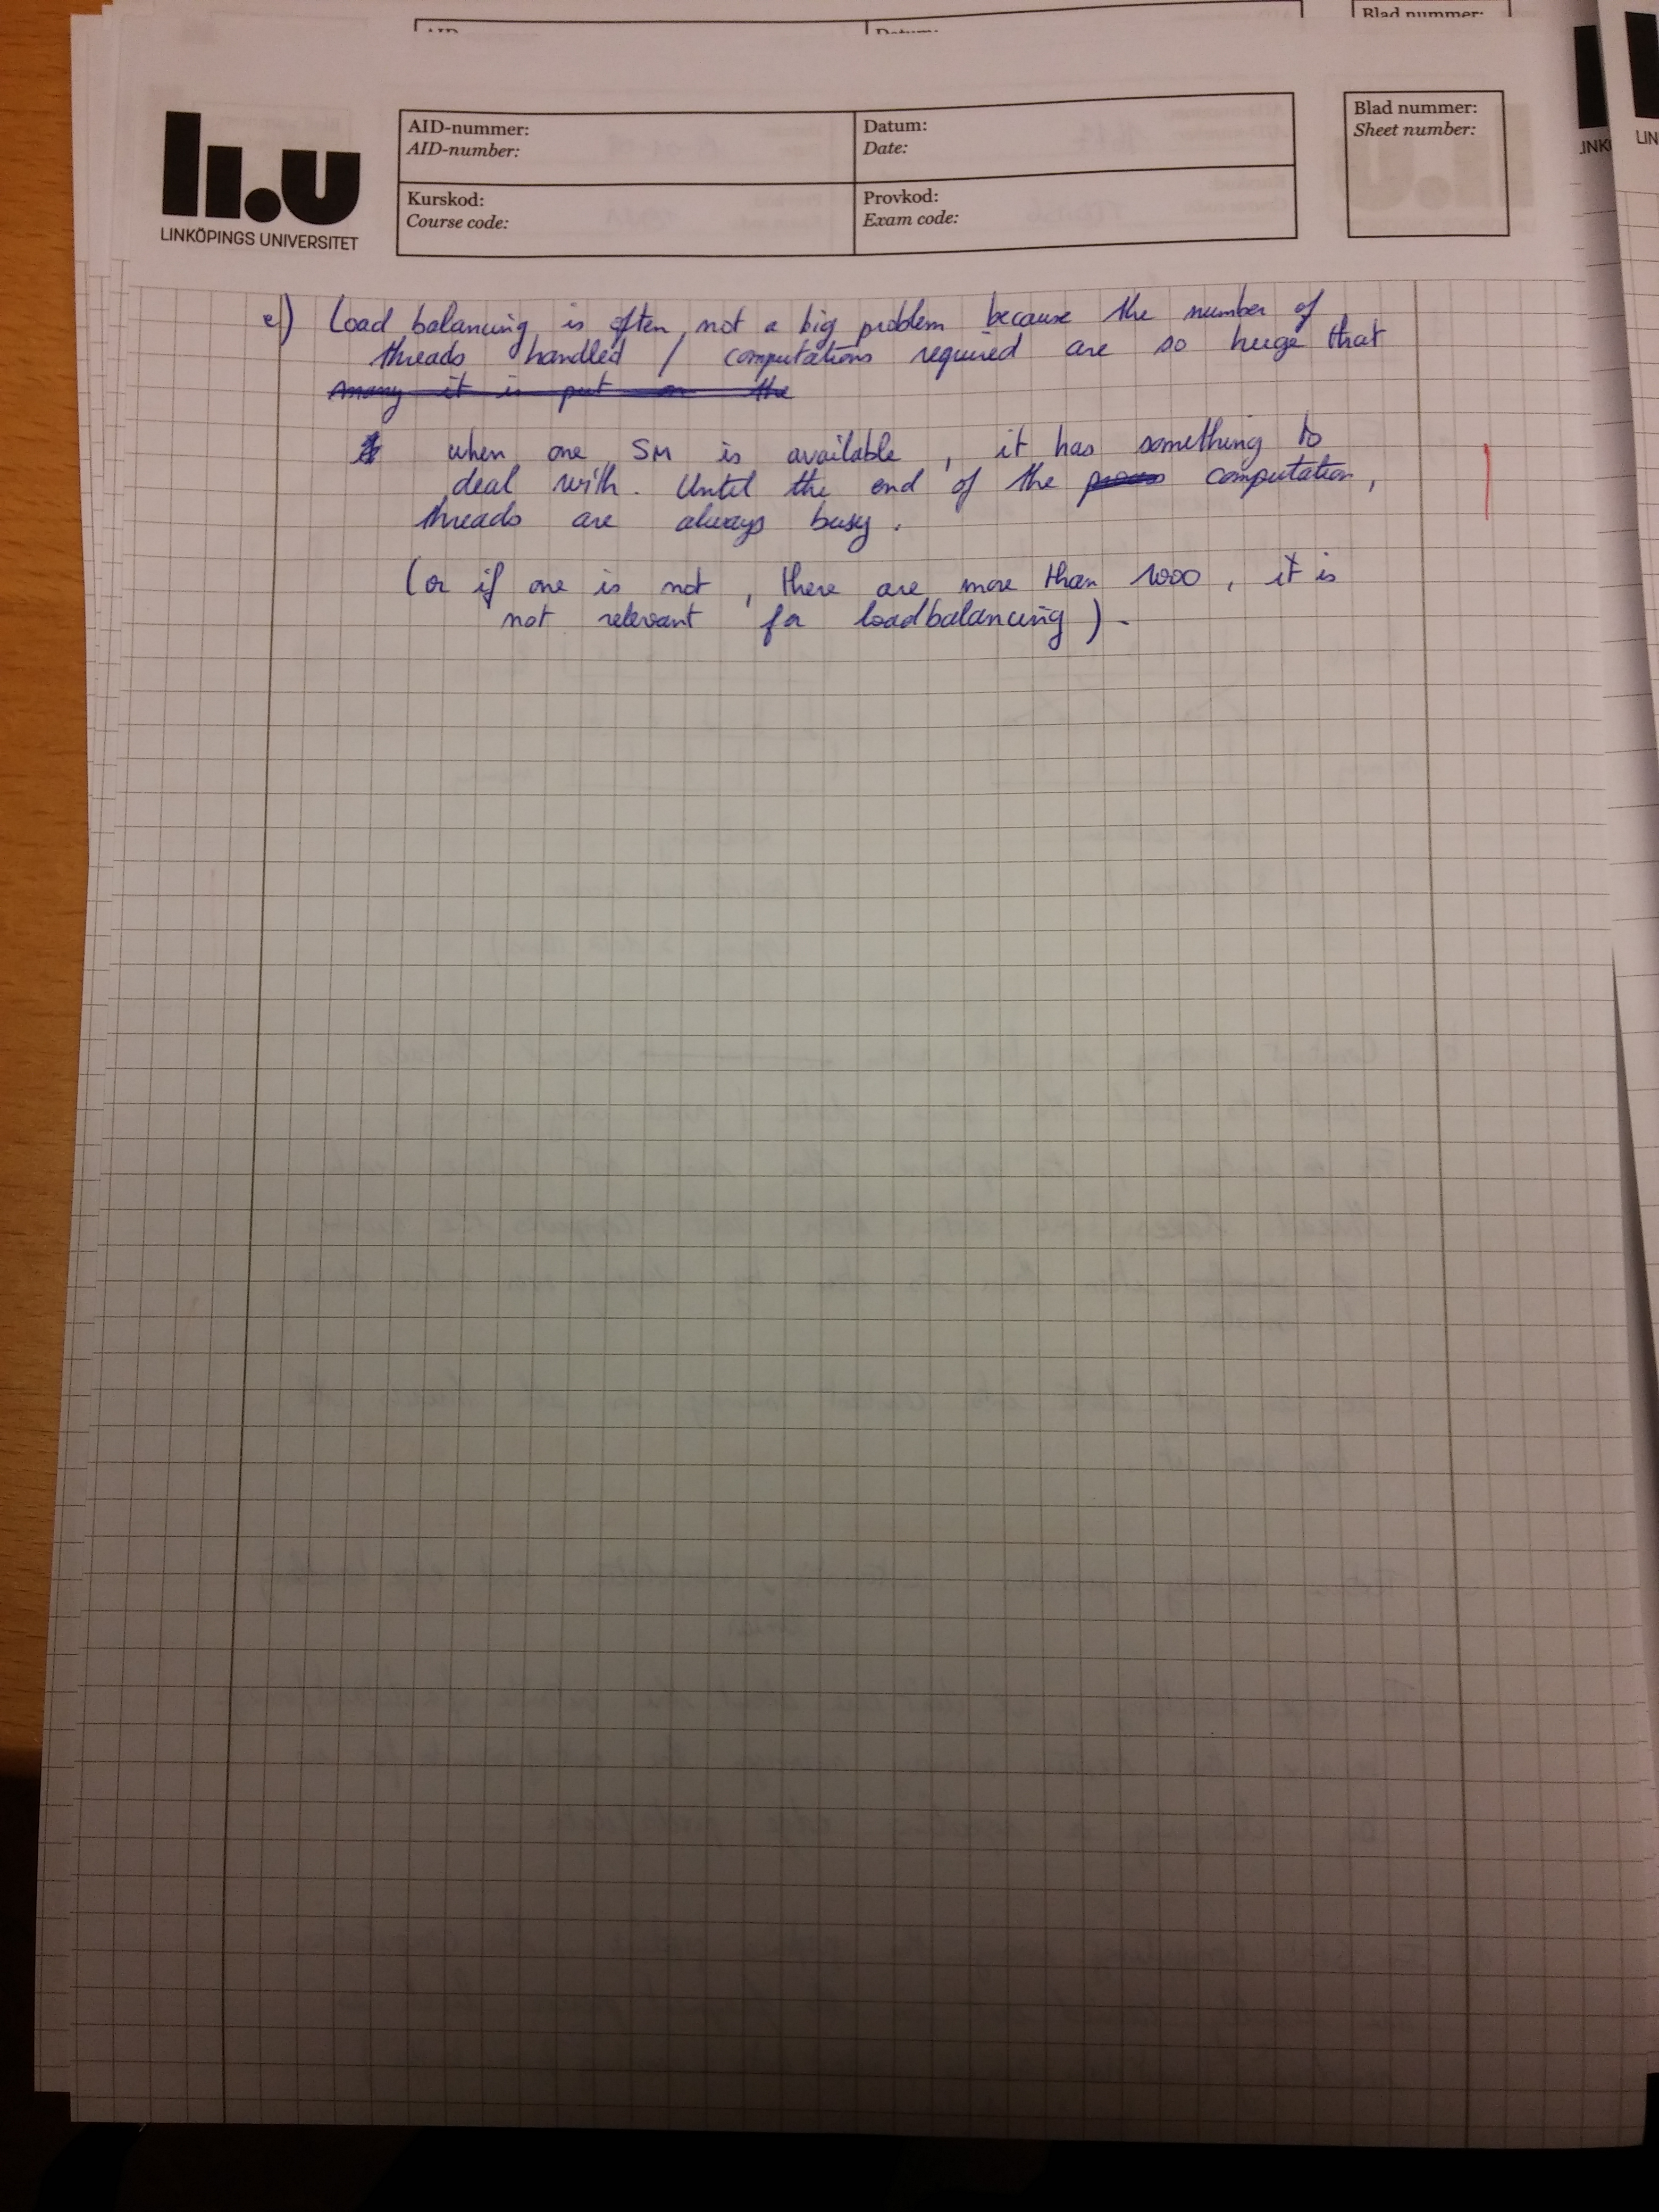 Blad nummer:
AID-nummer:
AID-number:
Datum:
Date:
Blad nummer:
Sheet number:
Kurskod:
Course code:
Provkod:
Exam code:
LINKÖPINGS UNIVERSITET
e) Load balancing is often not a big problem because the number of
threads handled / computations required are so huge that
many it is put on the
when one SM is available, it has something to
deal with. Until the end of the computation,
threads are always busy.
(or if one is not, there are more than 1000, it is
not relevant for loadbalancing).